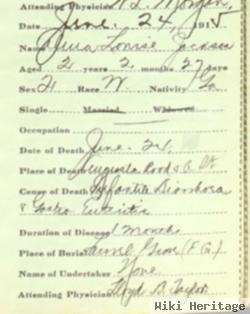 Attending Physician
Date June 24, 191
Name Louise Jackson
Aged 2 years 2 months 27 days
Sex Race W. Nativity Ga
Single Married Widowed
Occupation
Date of Death June 24
Place of Death Augusta Road
Cause of Death Infantile Diarrhoea
& Gastro Enteritis
Duration of Disease 1 Month
Place of Burial Laurel Grove (F.G.)
Name of Undertaker
Attending Physician B. Taylor
Wiki Heritage